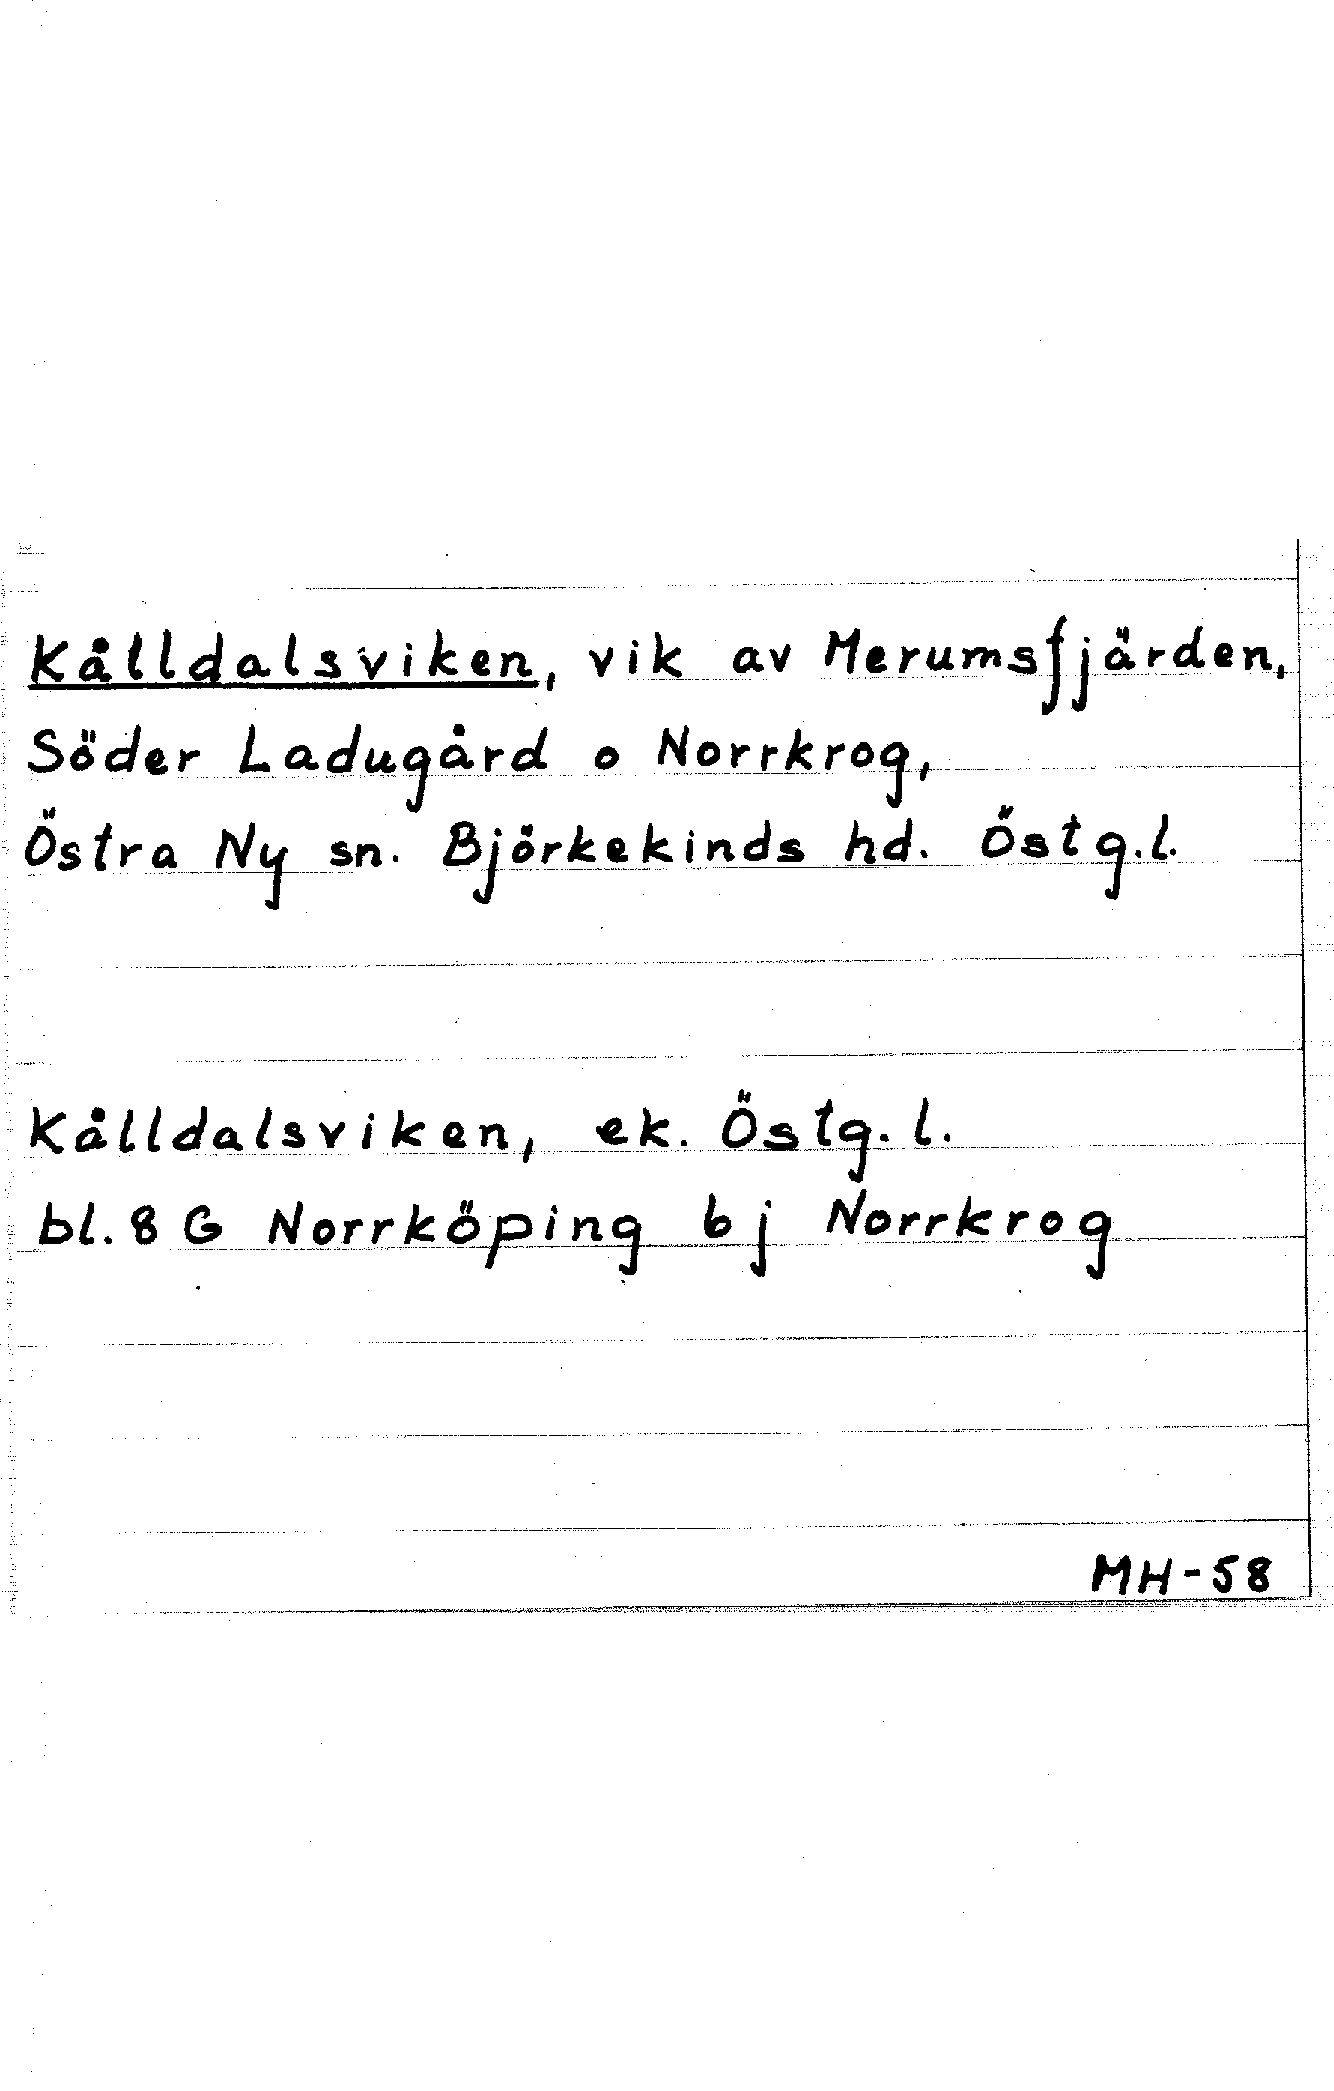 Kålldalsviken, vik av Merumsfjärden,
Söder Ladugård o Norrkrog,
Östra Ny sn. Björkekinds hd. Östg.l.
Kålldalsviken, ek. Östg.l.
bl. 8 G Norrköping bj Norrkrog
MH-58